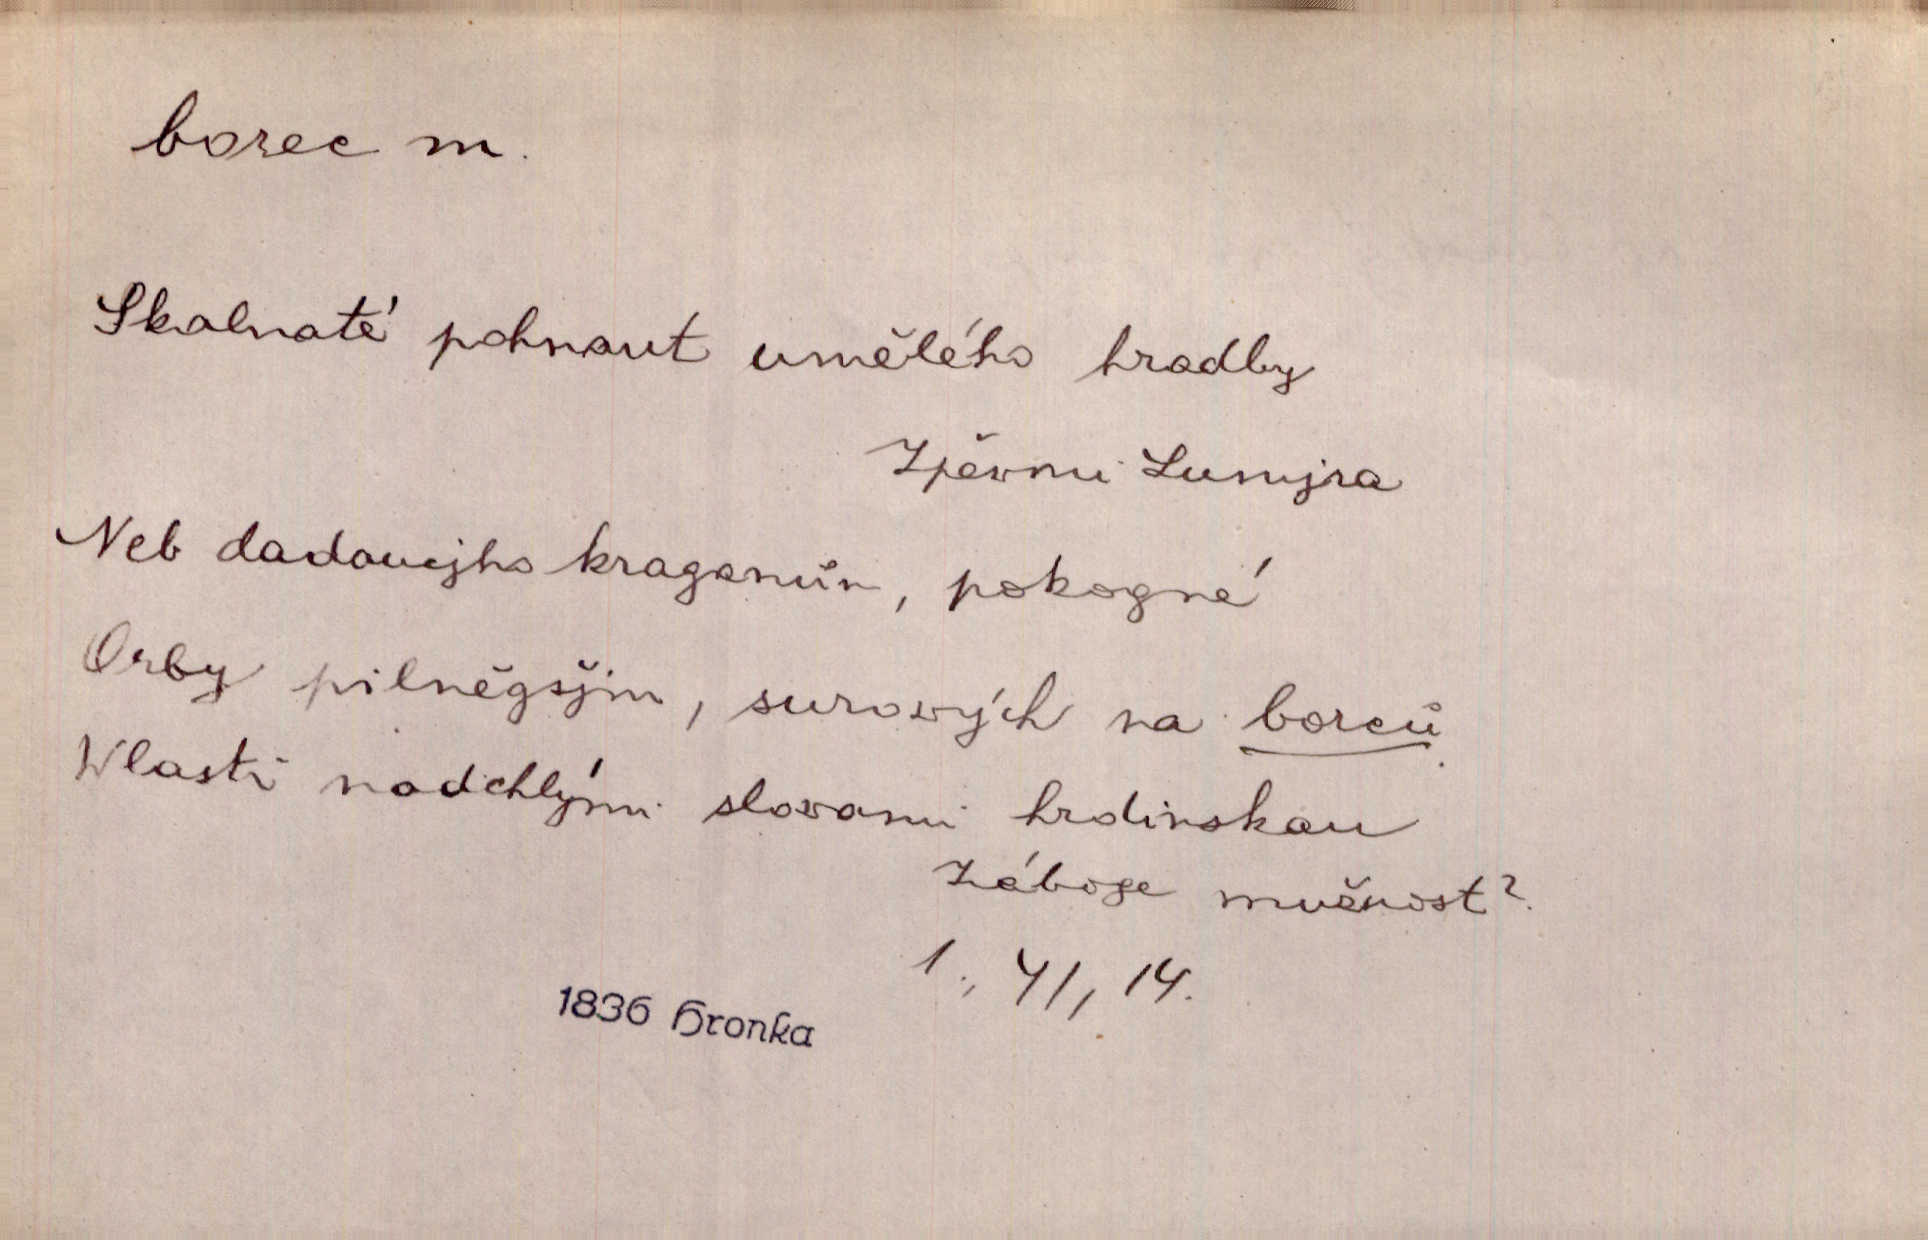 borec m.
Skalnaté pohnaut umělého hradby
Zpěvmi Lumjra
Neb dadaucjho kraganům, pokogné
Orby pilněgšjm, surových na borců
Wlasti nadchlými slovami hrdinskau
Záboge mužnost?
1., 41, 14.
1836 Hronka